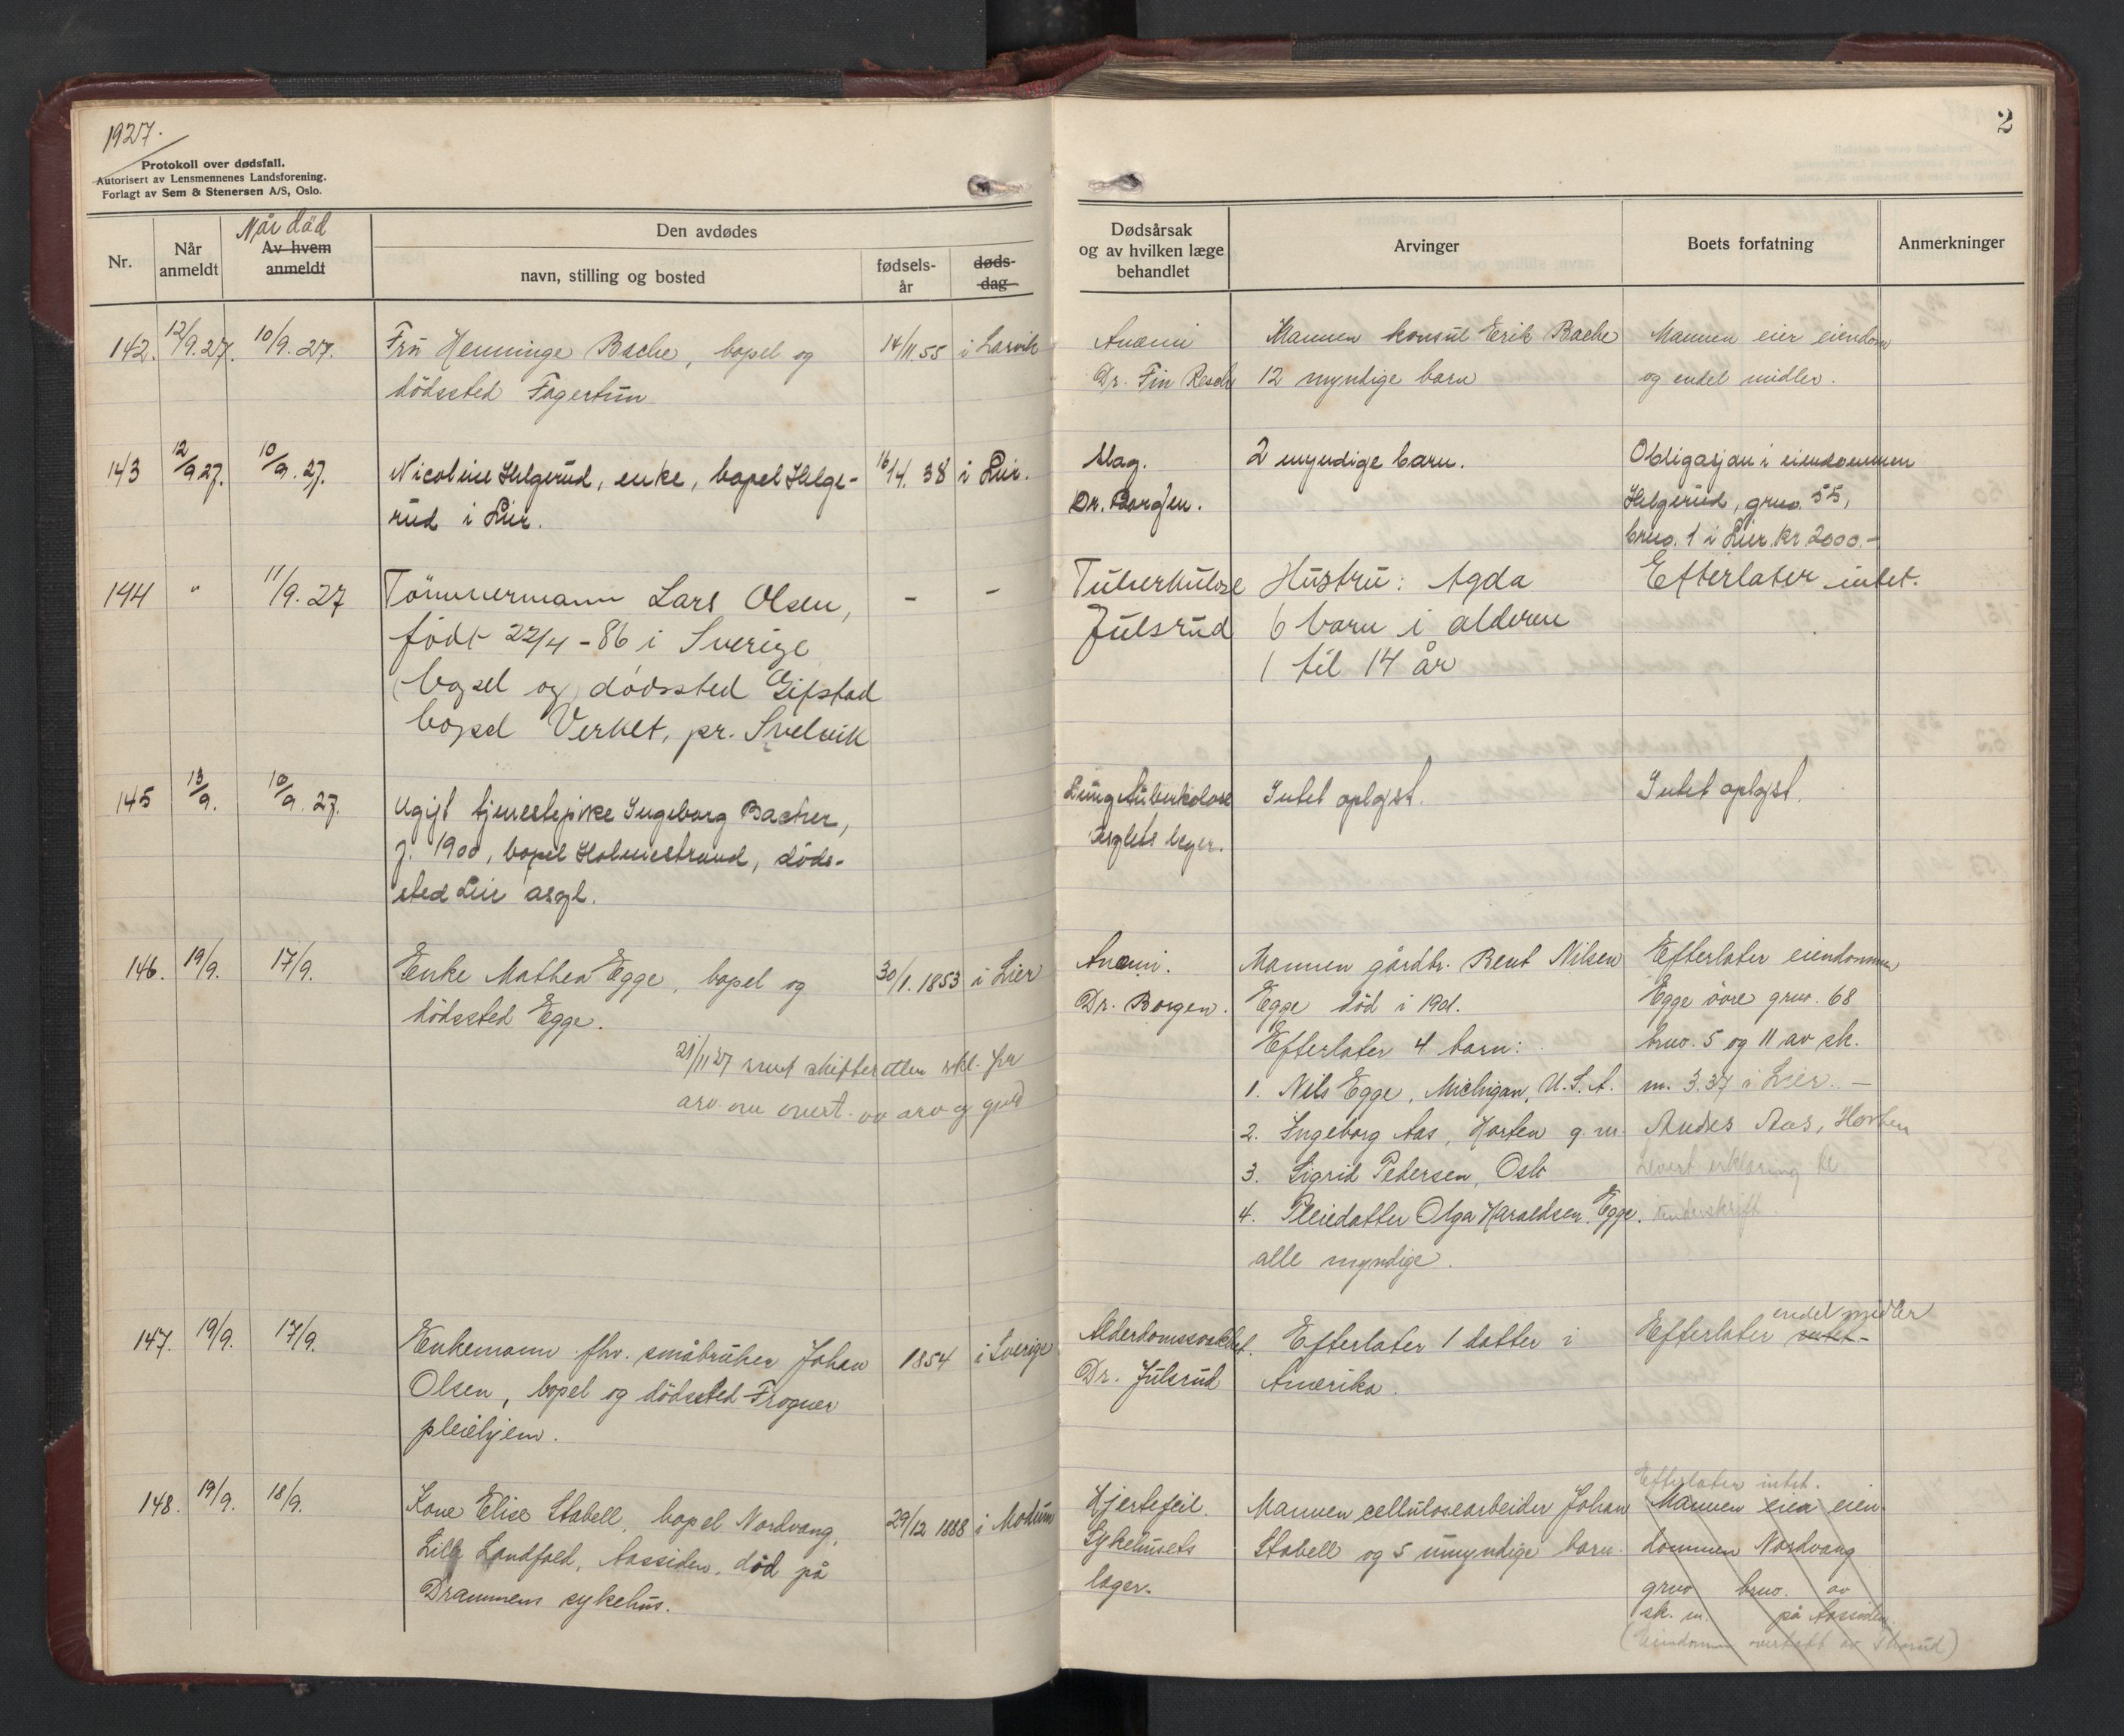 1927.
2
Protokoll over dødsfall.
Autorisert av Lensmennenes Landsforening.
Forlagt av Sem & Stenersen A/S, Oslo.
Nr.
Når
anmeldt
Når död
Av hvem
anmeldt
Den avdødes
navn, stilling og bosted
fødsels-
år
døds-
dag
Dødsårsak
og av hvilken læge
behandlet
Arvinger
Boets forfatning
Anmerkninger
142. 12/9.27. 10/9.27. Frü Henninge Bache, bopel og 14/11.55 i Larvik Anæmi Mannen konsül Erik Bache Mannen eier eiendom
dödssted Fagertün Dr. Fin Resch 12 myndige barn og endel midler.
143 12/9 27. 10/9. 27. Nicoline Helgerüd, enke, bopel Helge- 16/4. 38 i Lier. Slag. 2 myndige barn. Obligasjon i eiendommen
rüd i Lier. Dr. Borgen. Helgerüd, grno. 55,
brno. 1 i Lier. kr. 2000.-
144 " 11/9. 27 Tömmermann Lars Olsen, - - Tüberkülose Hüstrü: Agda Efterlater intet.
födt 22/4-86 i Sverige Jülsrüd 6 barn i alderen
bopel og dödssted Gifstad 1 til 14 år
bopel Verket, pr. Svelvik
145 13/9. 10/9 27. Ugift tjenestepike Ingeborg Bacher, Lüngetüberkolose Intet oplyst. Intet oplyst.
f. 1900, bopel Holmestrand, döds- Asylets læger.
sted Lier asyl.
146. 19/9. 17/9. Enke Mathea Egge, bopel og 30/1.1853 i Lier Anæmi. Mannen gårdbr. Bent Nilsen Efterlater eiendommen
dödssted Egge. Dr. Borgen. Egge död i 1901. Egge övre grno. 68
21/11 27 sent skifteretten erkl. for Efterlater 4 barn: brno. 5 og 11 av sk.
arv og gjeld 1. Nils Egge, Michigan, U.S.A. m. 3.37 i Lier. -
2. Ingeborg Aas, Horten g.m. Anders Aas, Horten
3. Sigrid Pedersen, Oslo Levert erklæring til
4. Pleiedatter Olga Haraldsen Egge. underskrift.
alle myndige.
147. 19/9. 17/9. Enkemann fhv. småbrüker Johan 1854 i Sverige Alderdomssvakhet. Efterlater 1 datter i Efterlater intet- endel midler
Olsen, bopel og dödssted Frogner Dr. Jülsrüd Amerika.
pleiehjem.
148. 19/9. 18/9. Kone Elise Stabell, bopel Nordvang, 29/12 1888 i Modüm Hjertefeil. Mannen cellülosearbeider Johan Efterlater intet. Mannen eier eien-
Lille Landfald, Aassiden, död på Sykehüsets Stabell og 5 ümyndige barn. dommen Nordvang
Drammens sykehüs. læger. grno brno. av
sk. m. på Aassiden.
(Eiendommen overtatt av Thorüd)